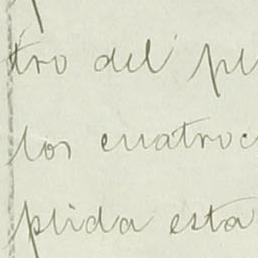 tro del pl
los cuatroc
plida esta